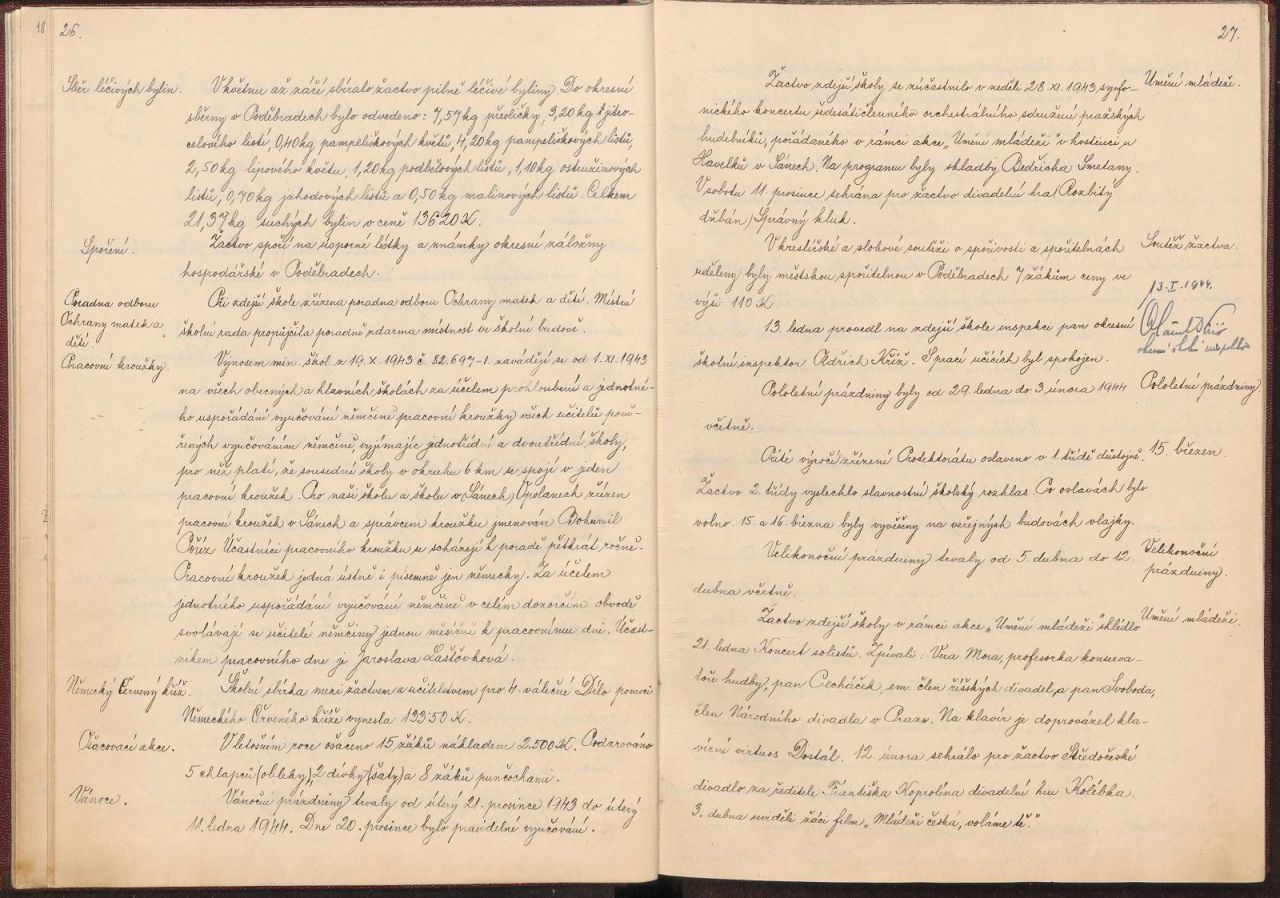 18
26.
Sběr léčivých bylin.
V květnu až září sbíralo žactvo pilně léčivé byliny. Do okresní
sběrny v Poděbradech bylo odvedeno: 7,57 kg přesličky, 3,20 kg jitro-
celového listí, 0,40 kg pampeliškových květů, 4,20 kg pampeliškových listů,
2,50 kg lipového květu, 1,20 kg podbělových listů, 1,10 kg ostružinových
listů, 0,70 kg jahodových listů a 0,50 kg malinových listů. Celkem
21,37 kg suchých bylin v ceně 136·20 K.
Spoření.
Žactvo spoří na úsporné lístky a známky okresní záložny
hospodářské v Poděbradech.
Poradna odboru
Ochrany matek a
dětí.
Při zdejší škole zřízena poradna odboru Ochrany matek a dětí. Místní
školní rada propůjčila poradně zdarma místnost ve školní budově.
Pracovní kroužky.
Výnosem min. škol. z 19. X. 1943 č. 82.697-I. zavádějí se od 1. XI. 1943
na všech obecných a hlavních školách za účelem prohloubení a jednotné-
ho uspořádání vyučování němčině pracovní kroužky všech učitelů pově-
řených vyučováním němčině, vyjímajíc jednotřídní a dvoutřídní školy,
pro něž platí, že sousední školy v okruhu 6 km se spojí v jeden
pracovní kroužek. Pro naši školu a školu v (Sánech) Opolanech zřízen
pracovní kroužek v Sánech a správcem kroužku jmenován Bohumil
Pôříz. Účastníci pracovního kroužku se scházejí k poradě pětkrát ročně.
Pracovní kroužek jedná ústně i písemně jen německy. Za účelem
jednotného uspořádání vyučování němčině v celém dozorčím obvodě
svolávají se učitelé němčiny jednou měsíčně k pracovnímu dni. Účast-
níkem pracovního dne je Jaroslava Laštovková.
Německý Červený kříž.
Školní sbírka mezi žactvem a učitelstvem pro 4. válečné Dílo pomoci
Německého Červeného kříže vynesla 133·50 K.
Ošacovací akce.
V letošním roce ošaceno 15 žáků nákladem 2.500 K. Podarováno
5 chlapců (obleky), 2 dívky (šaty) a 8 žáků punčochami.
Vánoce.
Vánoční prázdniny trvaly od úterý 21. prosince 1943 do úterý
11. ledna 1944. Dne 20. prosince bylo pravidelné vyučování.
27.
Žactvo zdejší školy se zúčastnilo v neděli 28. XI. 1943 symfo-
Umění mládeži.
nického koncertu šedesátičlenného orchestrálního sdružení pražských
hudebníků, pořádaného v rámci akce „Umění mládeži" v hostinci u
Havelků v Sánech. Na programu byly skladby Bedřicha Smetany.
V sobotu 11. prosince sehrána pro žactvo divadelní hra (Rozbitý
džbán) Správný kluk.
V kreslířské a slohové soutěži o spořivosti a spořitelnách
Soutěž žactva.
uděleny byly městskou spořitelnou v Poděbradech 7 žákům ceny ve
výši 110 K.
13. I. 1944.
13. ledna provedl na zdejší škole inspekci pan okresní
školní inspektor Oldřich Kříž. S prací učících byl spokojen.
Pololetní prázdniny byly od 29. ledna do 3. února 1944
Pololetní prázdniny
včetně.
Páté výročí zřízení Protektorátu oslaveno v 1. třídě důstojně.
15. březen.
Žactvo 2. třídy vyslechlo slavnostní školský rozhlas. Po oslavách bylo
volno. 15. a 16. března byly vyvěšeny na veřejných budovách vlajky.
Velikonoční prázdniny trvaly od 5. dubna do 12.
Velikonoční
prázdniny.
dubna včetně.
Žactvo zdejší školy v rámci akce „Umění mládeži" shlédlo
Umění mládeži.
21. ledna Koncert solistů. Zpívali: Věra Mora, profesorka konserva-
toře hudby, pan Čecháček em. člen říšských divadel, a pan Svoboda,
člen Národního divadla v Praze. Na klavír je doprovázel kla-
vírní virtuos Dostál. 12. února sehrálo pro žactvo Středočeské
divadlo za ředitele Františka Koprolína divadelní hru Kolébka.
3. dubna uviděli žáci film „Mládeži česká, voláme tě."